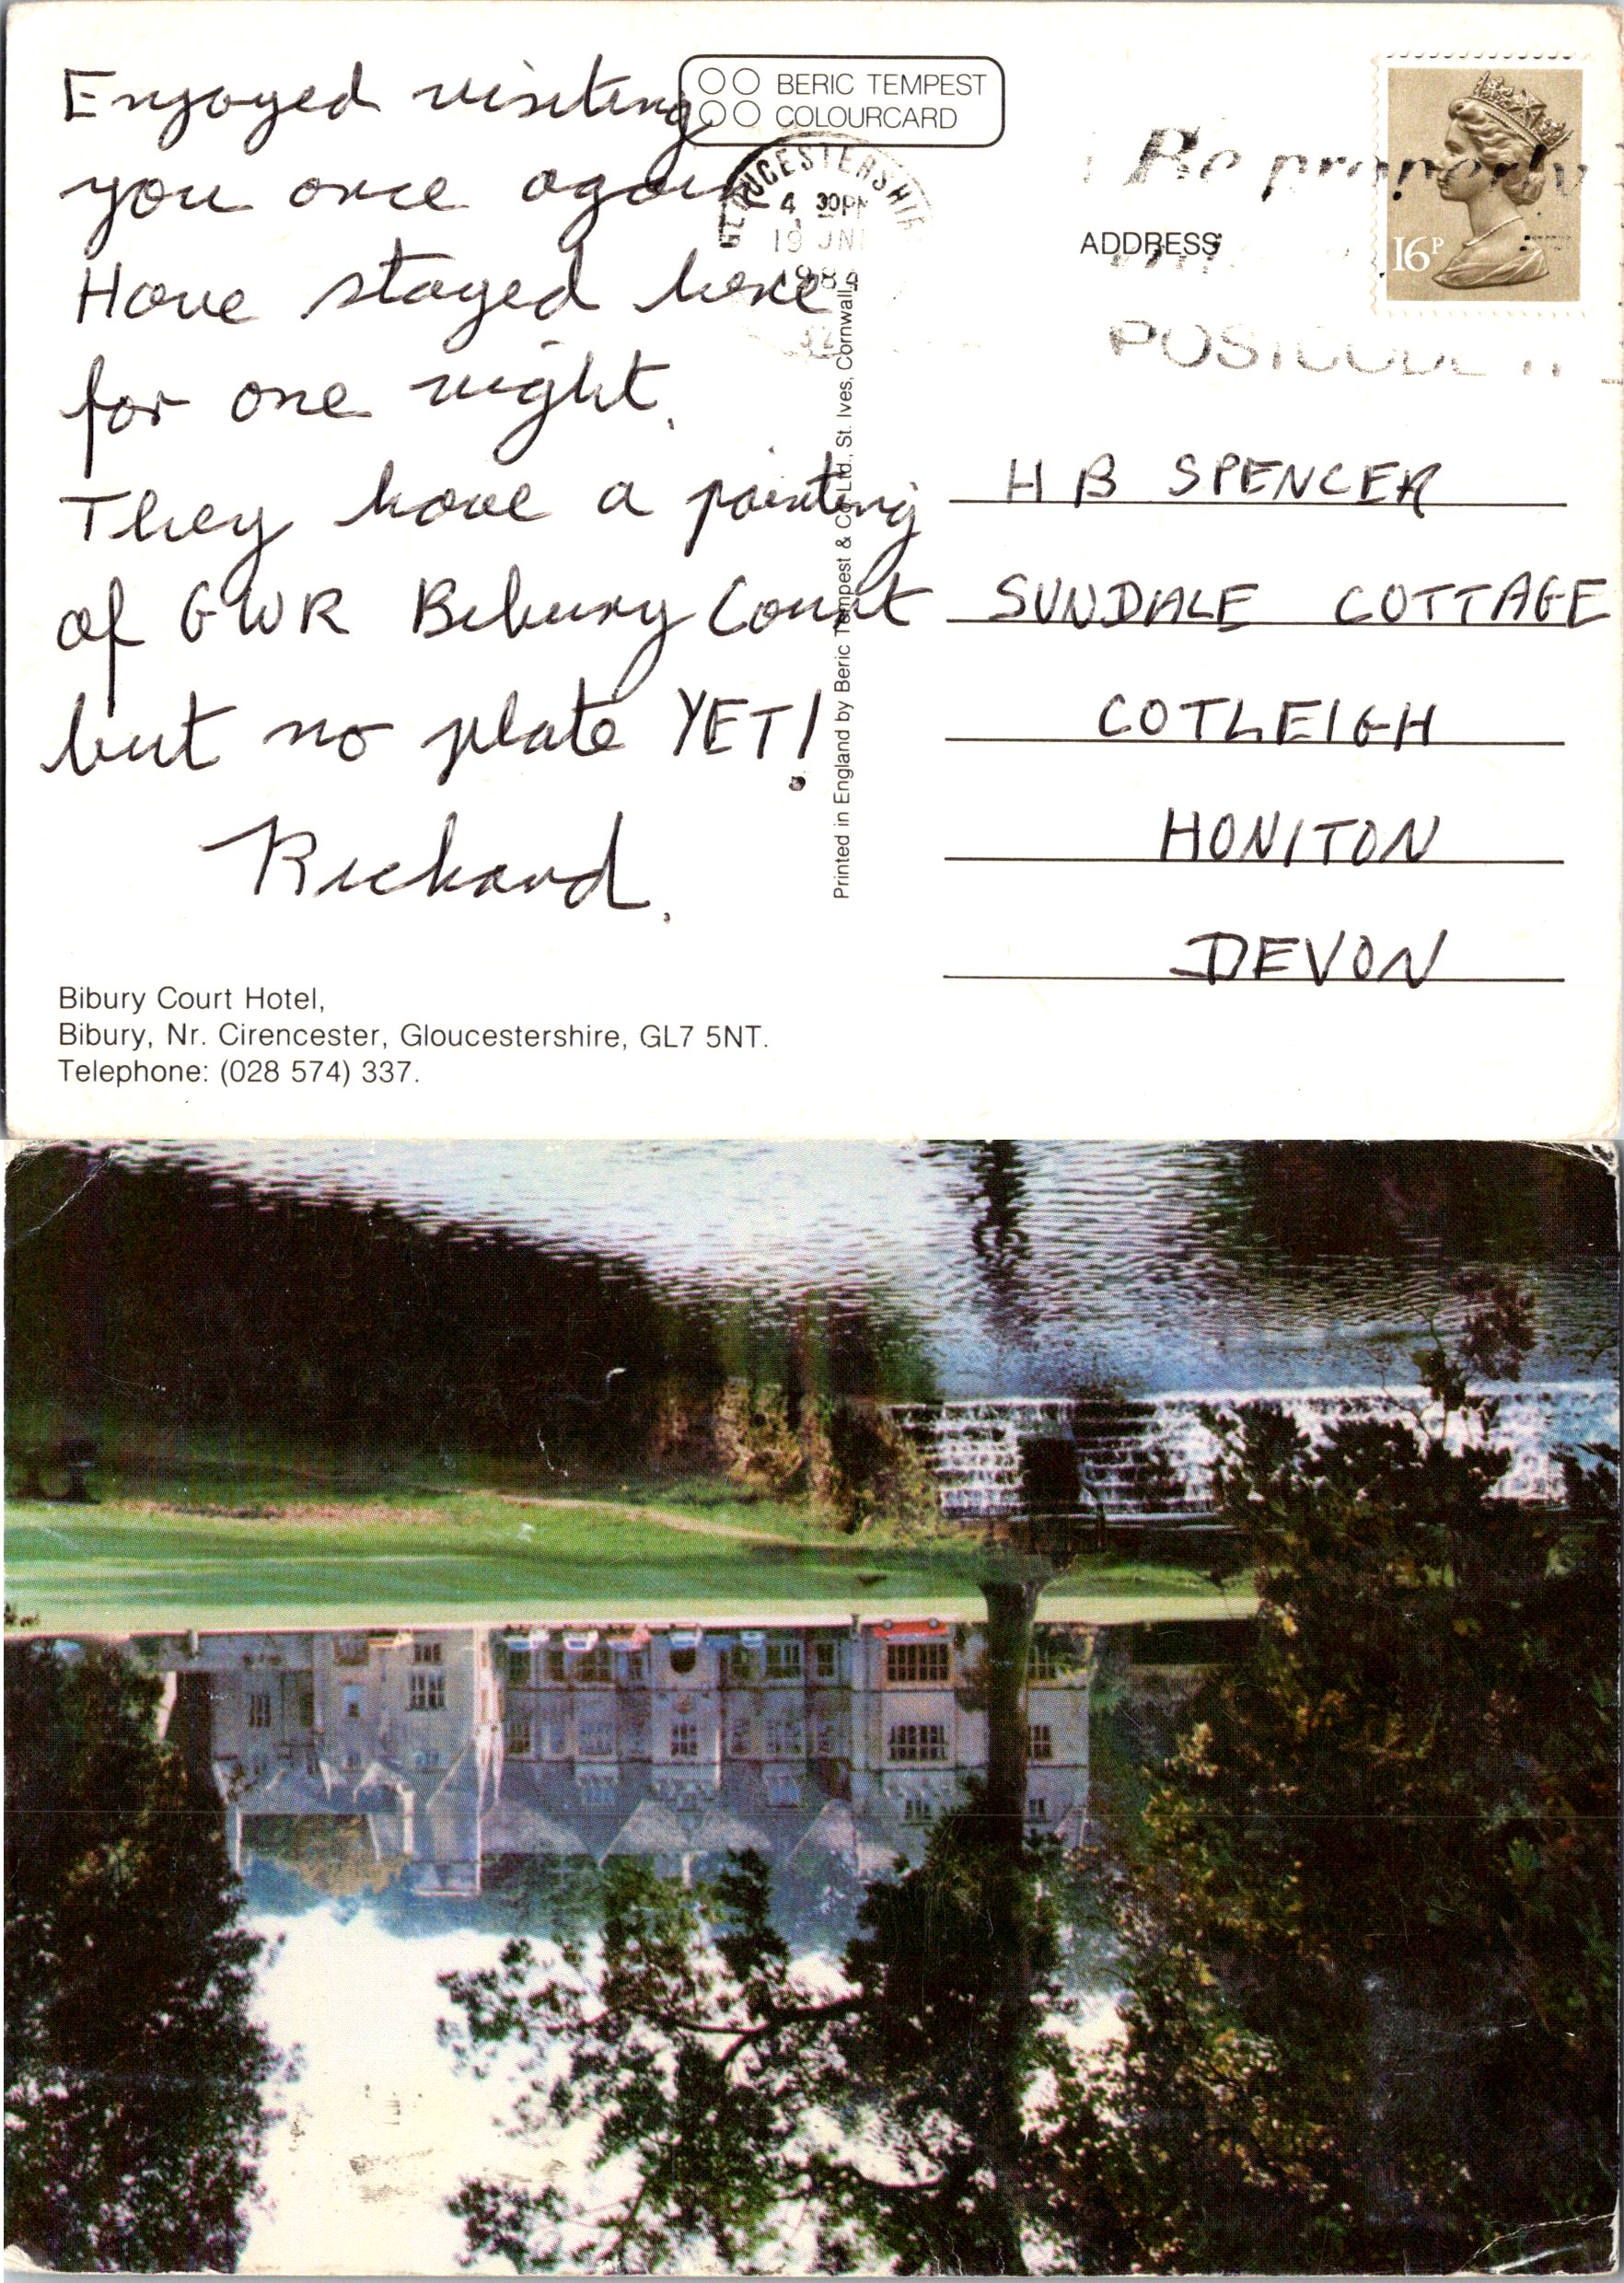 Enjoyed visiting
you once again
Have stayed here
for one night.
They have a painting
of GWR Bibury Court
but no plate YET!
Richard.
Bibury Court Hotel,
Bibury, Nr. Cirencester, Gloucestershire, GL7 5NT.
Telephone: (028 574) 337.
BERIC TEMPEST
COLOURCARD
GLOUCESTERSHIRE
4 30PM
19 JNE
Printed in England by Beric Tempest & Co. Ltd., St. Ives, Cornwall.
Be properly
ADDRESS
POSTCODE IT
16P
H B SPENCER
SUNDALE COTTAGE
COTLEIGH
HONITON
DEVON